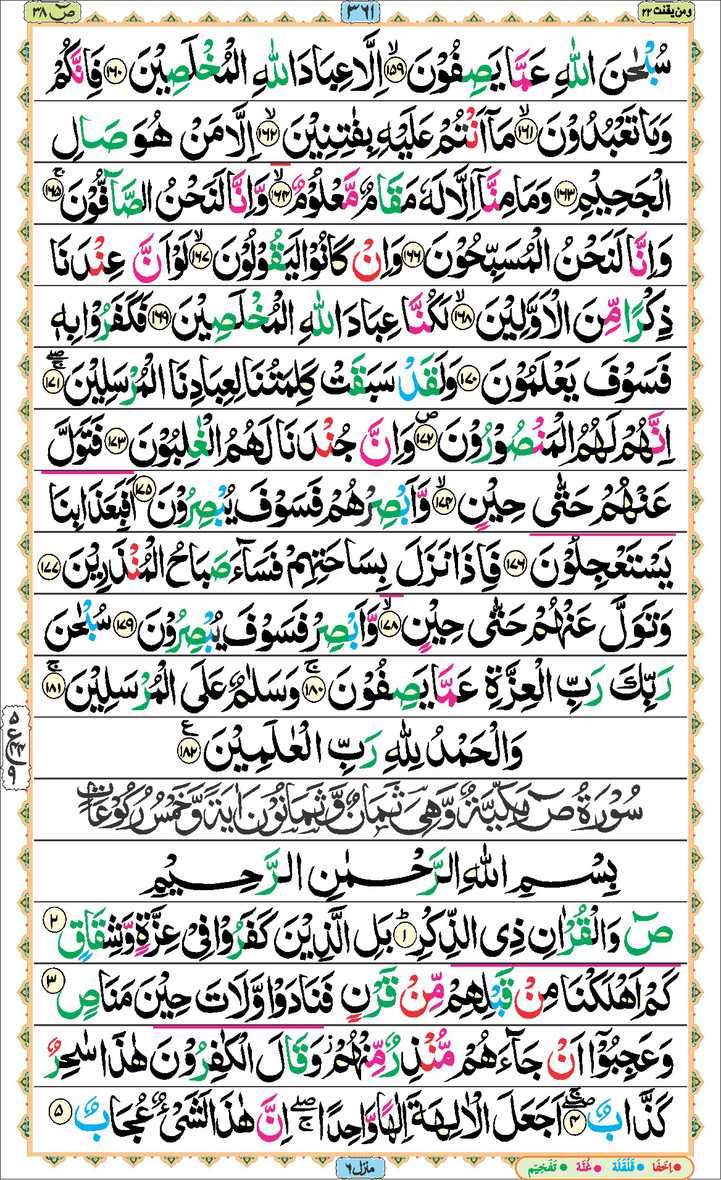 ومن يقنت ٢٣
٣٦١
صٓ ٣٨
سُبْحٰنَ اللّٰهِ عَمَّا يَصِفُوْنَ ﴿١٥٩﴾ۙ اِلَّا عِبَادَ اللّٰهِ الْمُخْلَصِيْنَ ﴿١٦٠﴾ فَاِنَّكُمْ
وَمَا تَعْبُدُوْنَ ﴿١٦١﴾ۙ مَاۤ اَنْتُمْ عَلَيْهِ بِفٰتِنِيْنَ ﴿١٦٢﴾ۙ اِلَّا مَنْ هُوَ صَالِ
الْجَحِيْمِ ﴿١٦٣﴾ وَمَا مِنَّاۤ اِلَّا لَهٗ مَقَامٌ مَّعْلُوْمٌ ﴿١٦٤﴾ۙ وَّاِنَّا لَنَحْنُ الصَّآفُّوْنَ ﴿١٦٥﴾ۚ
وَاِنَّا لَنَحْنُ الْمُسَبِّحُوْنَ ﴿١٦٦﴾ وَاِنْ كَانُوْا لَيَقُوْلُوْنَ ﴿١٦٧﴾ۙ لَوْ اَنَّ عِنْدَنَا
ذِكْرًا مِّنَ الْاَوَّلِيْنَ ﴿١٦٨﴾ۙ لَكُنَّا عِبَادَ اللّٰهِ الْمُخْلَصِيْنَ ﴿١٦٩﴾ فَكَفَرُوْا بِهٖ
فَسَوْفَ يَعْلَمُوْنَ ﴿١٧٠﴾ وَلَقَدْ سَبَقَتْ كَلِمَتُنَا لِعِبَادِنَا الْمُرْسَلِيْنَ ﴿١٧١﴾ۚۖ
اِنَّهُمْ لَهُمُ الْمَنْصُوْرُوْنَ ﴿١٧٢﴾ۖ وَاِنَّ جُنْدَنَا لَهُمُ الْغٰلِبُوْنَ ﴿١٧٣﴾ فَتَوَلَّ
عَنْهُمْ حَتّٰى حِيْنٍ ﴿١٧٤﴾ۙ وَّاَبْصِرْهُمْ فَسَوْفَ يُبْصِرُوْنَ ﴿١٧٥﴾ اَفَبِعَذَابِنَا
يَسْتَعْجِلُوْنَ ﴿١٧٦﴾ فَاِذَا نَزَلَ بِسَاحَتِهِمْ فَسَآءَ صَبَاحُ الْمُنْذَرِيْنَ ﴿١٧٧﴾
وَتَوَلَّ عَنْهُمْ حَتّٰى حِيْنٍ ﴿١٧٨﴾ۙ وَّاَبْصِرْ فَسَوْفَ يُبْصِرُوْنَ ﴿١٧٩﴾ سُبْحٰنَ
رَبِّكَ رَبِّ الْعِزَّةِ عَمَّا يَصِفُوْنَ ﴿١٨٠﴾ۚ وَسَلٰمٌ عَلَى الْمُرْسَلِيْنَ ﴿١٨١﴾ۚ
وَالْحَمْدُ لِلّٰهِ رَبِّ الْعٰلَمِيْنَ ﴿١٨٢﴾ ع
سُوْرَةُ صٓ مَكِّيَّةٌ وَّهِيَ ثَمَانٌ وَّثَمَانُوْنَ اٰيَةً وَّخَمْسُ رُكُوْعَاتٍ
بِسْمِ اللّٰهِ الرَّحْمٰنِ الرَّحِيْمِ
صٓ وَالْقُرْاٰنِ ذِى الذِّكْرِ ﴿١﴾ؕ بَلِ الَّذِيْنَ كَفَرُوْا فِىْ عِزَّةٍ وَّشِقَاقٍ ﴿٢﴾
كَمْ اَهْلَكْنَا مِنْ قَبْلِهِمْ مِّنْ قَرْنٍ فَنَادَوْا وَّلَاتَ حِيْنَ مَنَاصٍ ﴿٣﴾
وَعَجِبُوْۤا اَنْ جَآءَهُمْ مُّنْذِرٌ مِّنْهُمْ وَقَالَ الْكٰفِرُوْنَ هٰذَا سٰحِرٌ
كَذَّابٌ ﴿٤﴾ۖۚ اَجَعَلَ الْاٰلِهَةَ اِلٰهًا وَّاحِدًا ۖۚ اِنَّ هٰذَا لَشَىْءٌ عُجَابٌ ﴿٥﴾
منزل ٦
اِخفا قَلقَلَه غُنَّه تَفخِيم